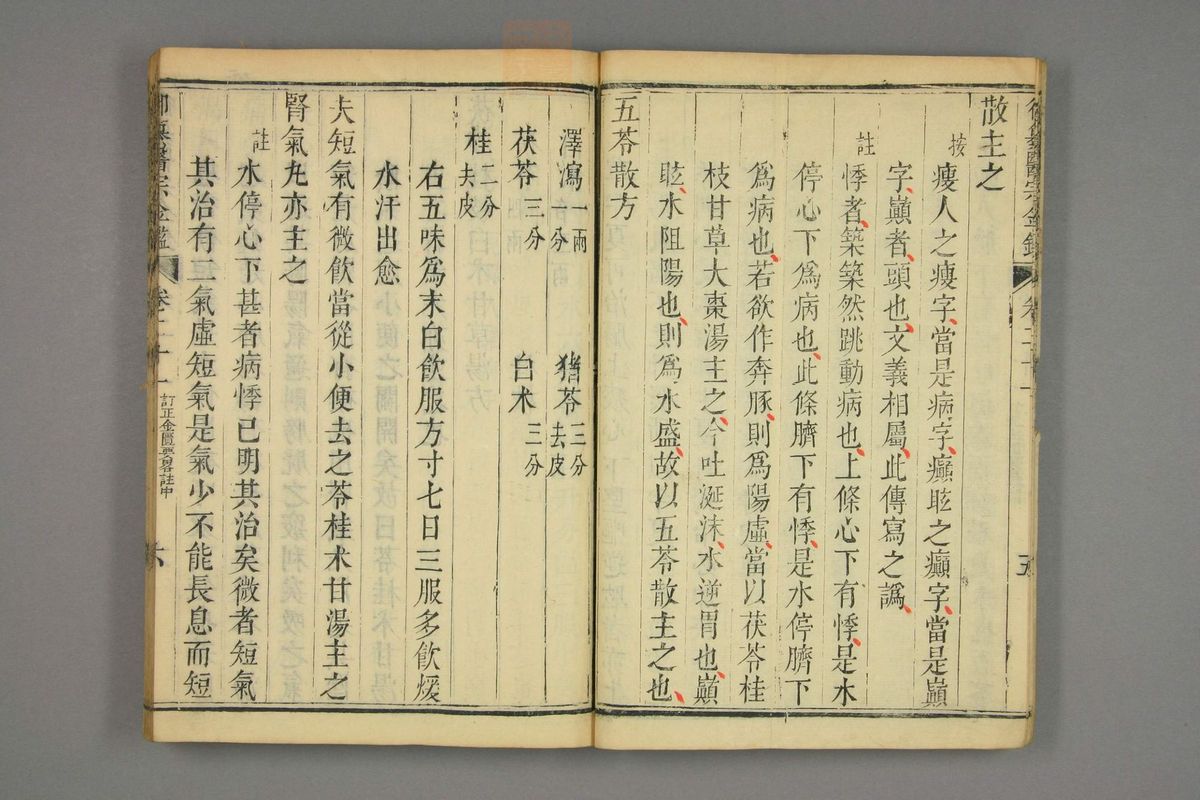 散主之
按
瘦人之瘦字當是病字癲眩之癲字當是巔
字巔者頭也文義相屬此傳寫之譌
註
悸者築築然跳動病也上條心下有悸是水
停心下為病也此條臍下有悸是水停臍下
為病也若欲作奔豚則為陽虛當以茯苓桂
枝甘草大棗湯主之今吐涎沫水逆胃也巔
眩水阻陽也則為水盛故以五苓散主之也
五苓散方
澤瀉一兩一分 豬苓三分去皮
茯苓三分 白朮三分
桂二分去皮
右五味為末白飲服方寸七日三服多飲煖
水汗出愈
夫短氣有微飲當從小便去之苓桂朮甘湯主之
腎氣丸亦主之
註
水停心下甚者病悸已明其治矣微者短氣
其治有二氣虛短氣是氣少不能長息而短
御纂醫宗金鑑 卷二十一 訂正金匱要畧註中 六